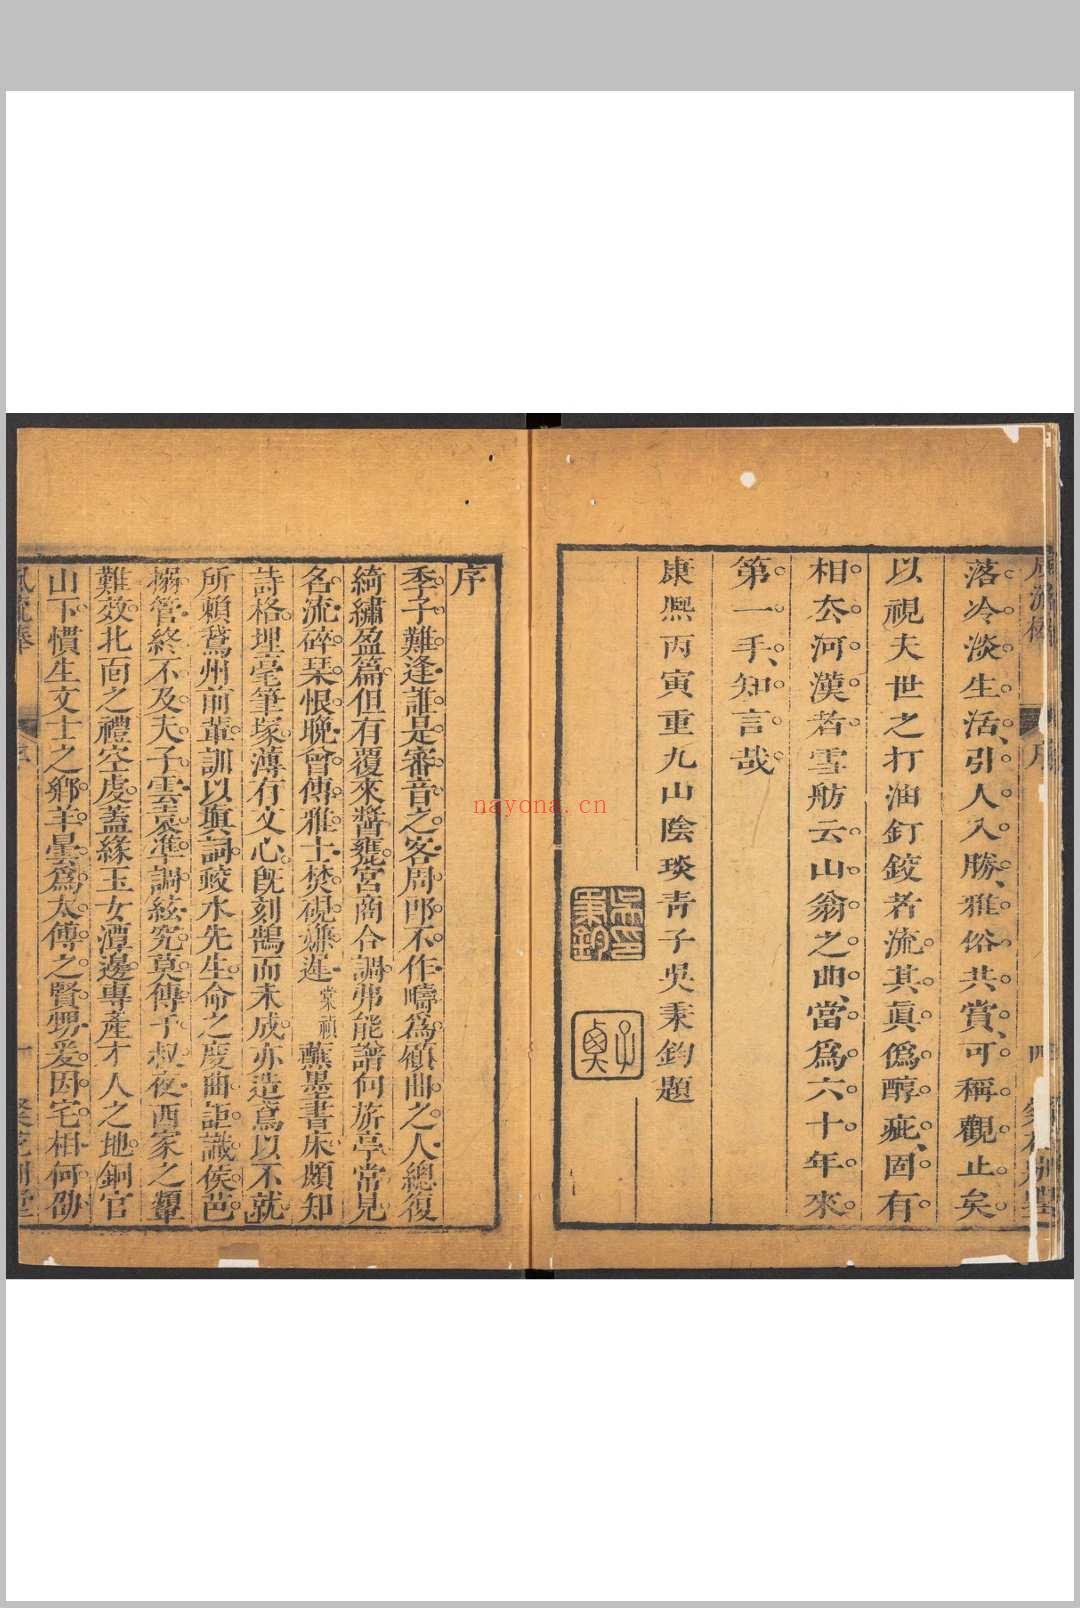 落冷淡生活引人入勝雅俗共賞可稱觀止矣
以視夫世之打油釘鉸者流其眞僞醇疵固有
相去河漢者雪舫云山翁之曲當爲六十年來
第一手知言哉
康熙丙寅重九山陰琰青子吳秉鈞題
序
季子難逢誰是審音之客周郎不作疇爲顧曲之人總復
綺繡盈篇但有覆來醬甕宮商合調弗能譜向旂亭常見
名流碎琹恨晚會傳雅士焚硯嫌遲棠禎蕪墨書床頗知
詩格埋毫筆塚薄有文心旣刻鵠而未成亦造鳶以不就
所賴鵞州前輩訓以塡詞蛟水先生命之度曲詎識侯芭
搦管終不及夫子雲袁準調絃究莫傳于叔夜西家之顰
難效北面之禮空虔蓋緣玉女潭邊專產才人之地銅官
山下慣生文士之鄉羊曇爲太傅之賢甥爰因宅相何劭
序
一
nayona.cn